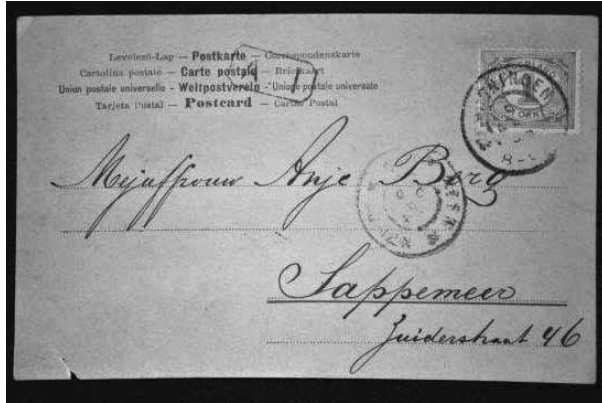 Levelező-Lap — Postkarte — Correspondenzkarte
Cartolina postale — Carte postale — Briefkaart
Union postale universelle - Weltpostverein - Unione postale universale
Tarjeta Postal — Postcard — Cartão Postal
1
CENT
Mejuffrouw Anje Borg
Sappemeer
Zuiderstraat 46